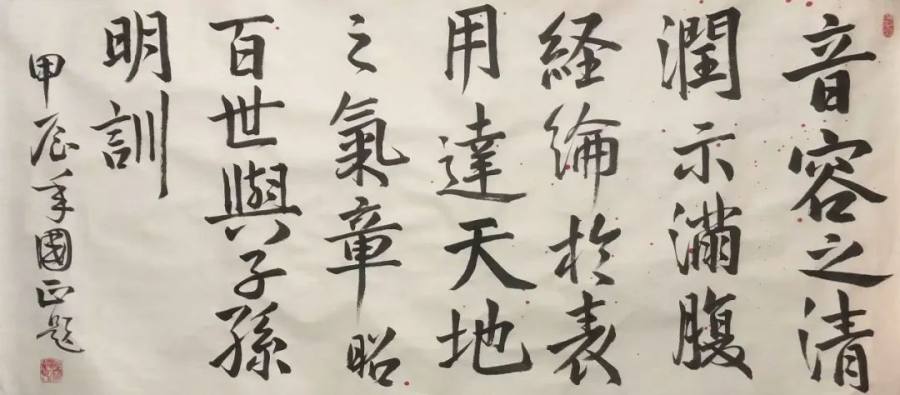 音容之清
潤示滿腹
経綸於表
用達天地
之氣章昭
百世與子孫
明訓
甲辰年國正題